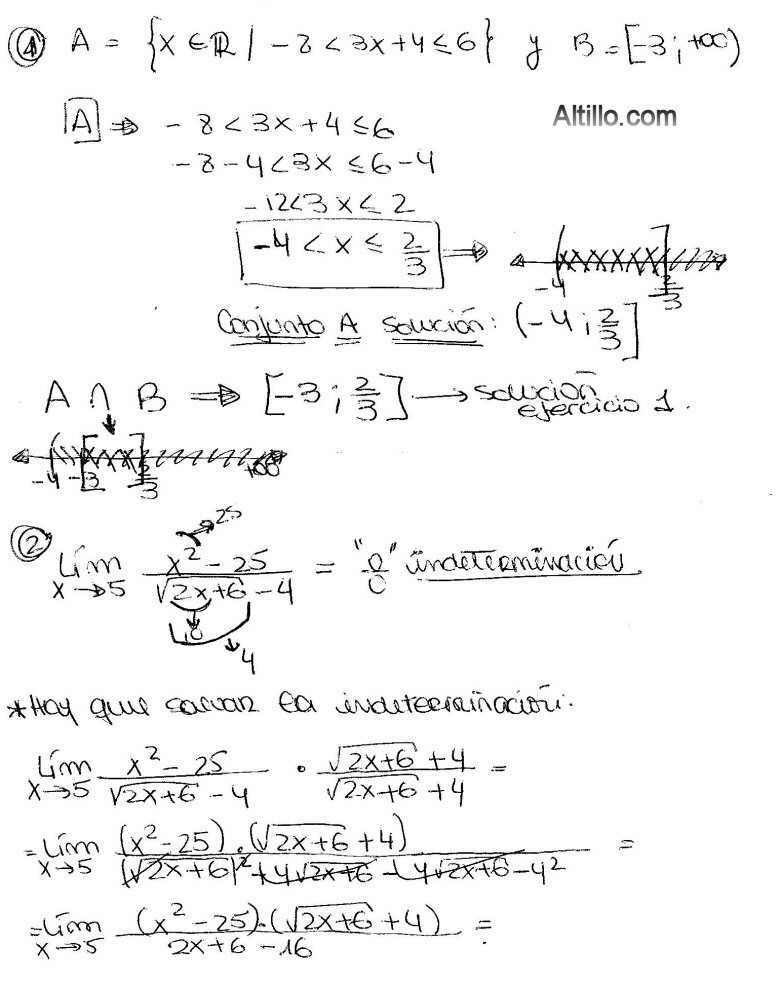 ① A = {x ∈ ℝ / -8 < 3x+4 ≤ 6} y B = [-3; +∞)
Altillo.com
A ⇒ -8 < 3x+4 ≤ 6
-8-4 < 3x ≤ 6-4
-12 < 3x ≤ 2
-4 < x ≤ 2/3 ⇒
-4 2/3
Conjunto A solución: (-4; 2/3]
A ∩ B ⇒ [-3; 2/3] → solución
ejercicio 1.
-4 -3 2/3 +∞
25
② Lím x→5 (x²-25)/(√(2x+6) -4) = "0/0" indeterminación
4
*Hay que salvar la indeterminación:
Lím x→5 (x²-25)/(√(2x+6) -4) · (√(2x+6) +4)/(√(2x+6) +4) =
= Lím x→5 ((x²-25).(√(2x+6) +4))/((√(2x+6))² +4√(2x+6) -4√(2x+6) -4²) =
= Lím x→5 ((x²-25).(√(2x+6) +4))/(2x+6 -16) =